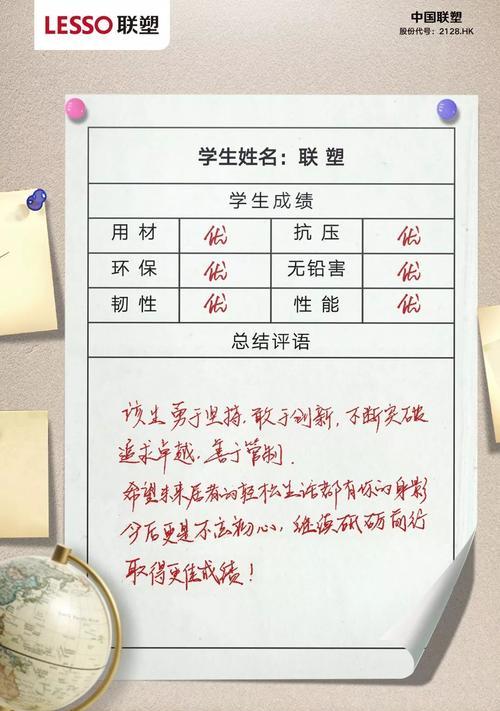 LESSO 联塑
中国联塑
股份代号：2128.HK
学生姓名：联 塑
学生成绩
用 材 优 抗 压 优
环 保 优 无铅害 优
韧 性 优 性 能 优
总结评语
该生勇于坚持，敢于创新，不断突破
追求卓越，善于管制.
希望未来居者的轻松生活都有你的身影
今后更是不忘初心，继续砥砺前行
取得更佳成绩！